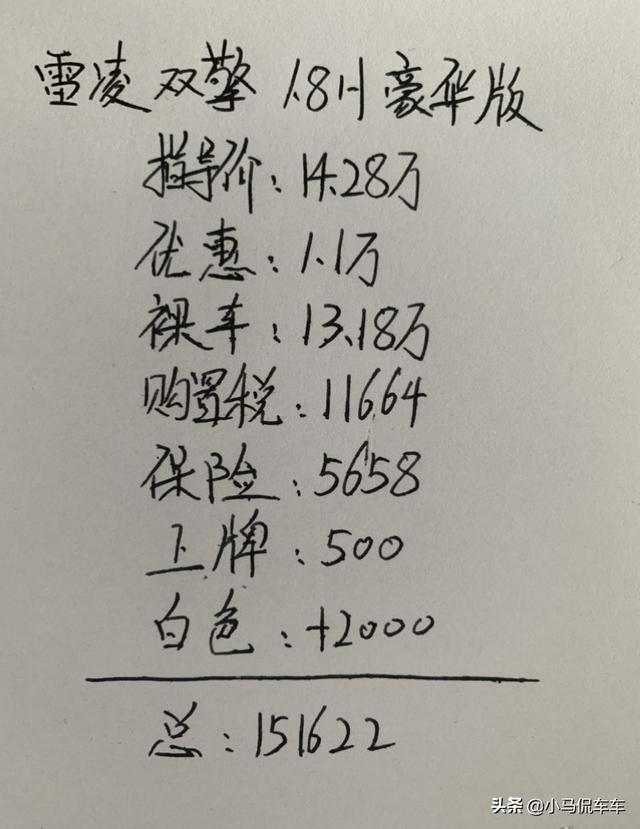 雷凌双擎 1.8H豪华版
指导价：14.28万
优惠：1.1万
裸车：13.18万
购置税：11664
保险：5658
上牌：500
白色：+2000
总：151622
头条 @小马侃车车